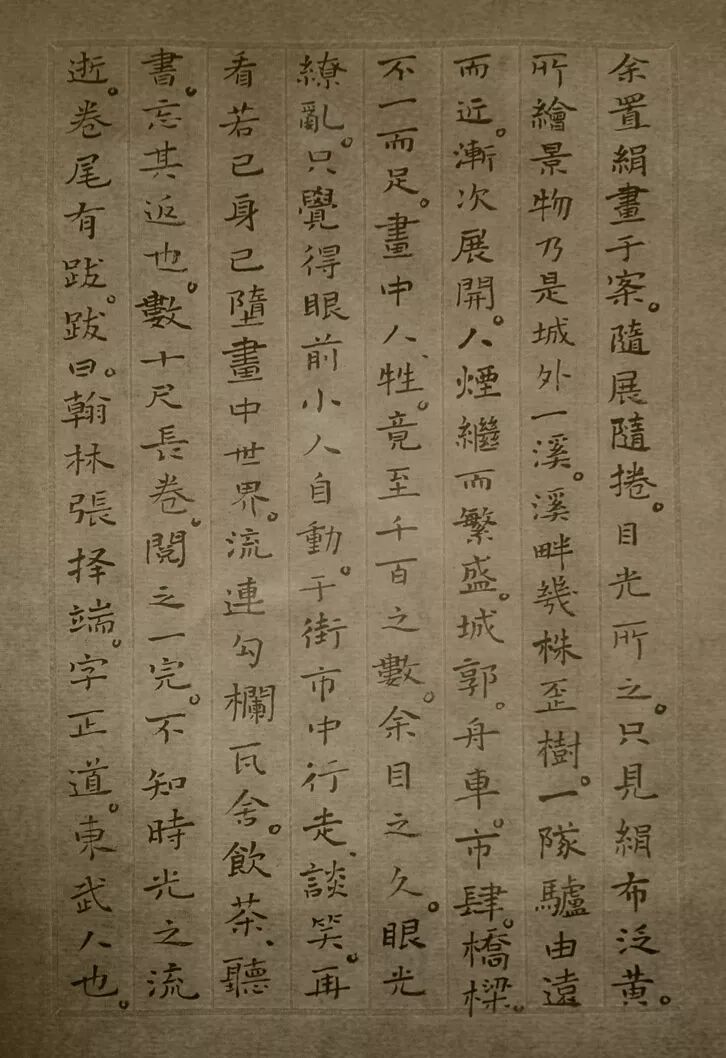 余置絹畫于案。隨展隨捲。目光所之。只見絹布泛黄。
所繪景物乃是城外一溪。溪畔幾株歪樹。一隊驢由遠
而近。漸次展開。人煙繼而繁盛。城郭。舟車。市肆。橋樑。
不一而足。畫中人、牲。竟至千百之數。余目之久。眼光
繚亂。只覺得眼前小人自動。于街市中行走、談笑。再
看若己身已墮畫中世界。流連勾欄瓦舍。飲茶、聽
書。忘其返也。數十尺長卷。閱之一完。不知時光之流
逝。卷尾有跋。跋曰。翰林張择端。字正道。東武人也。